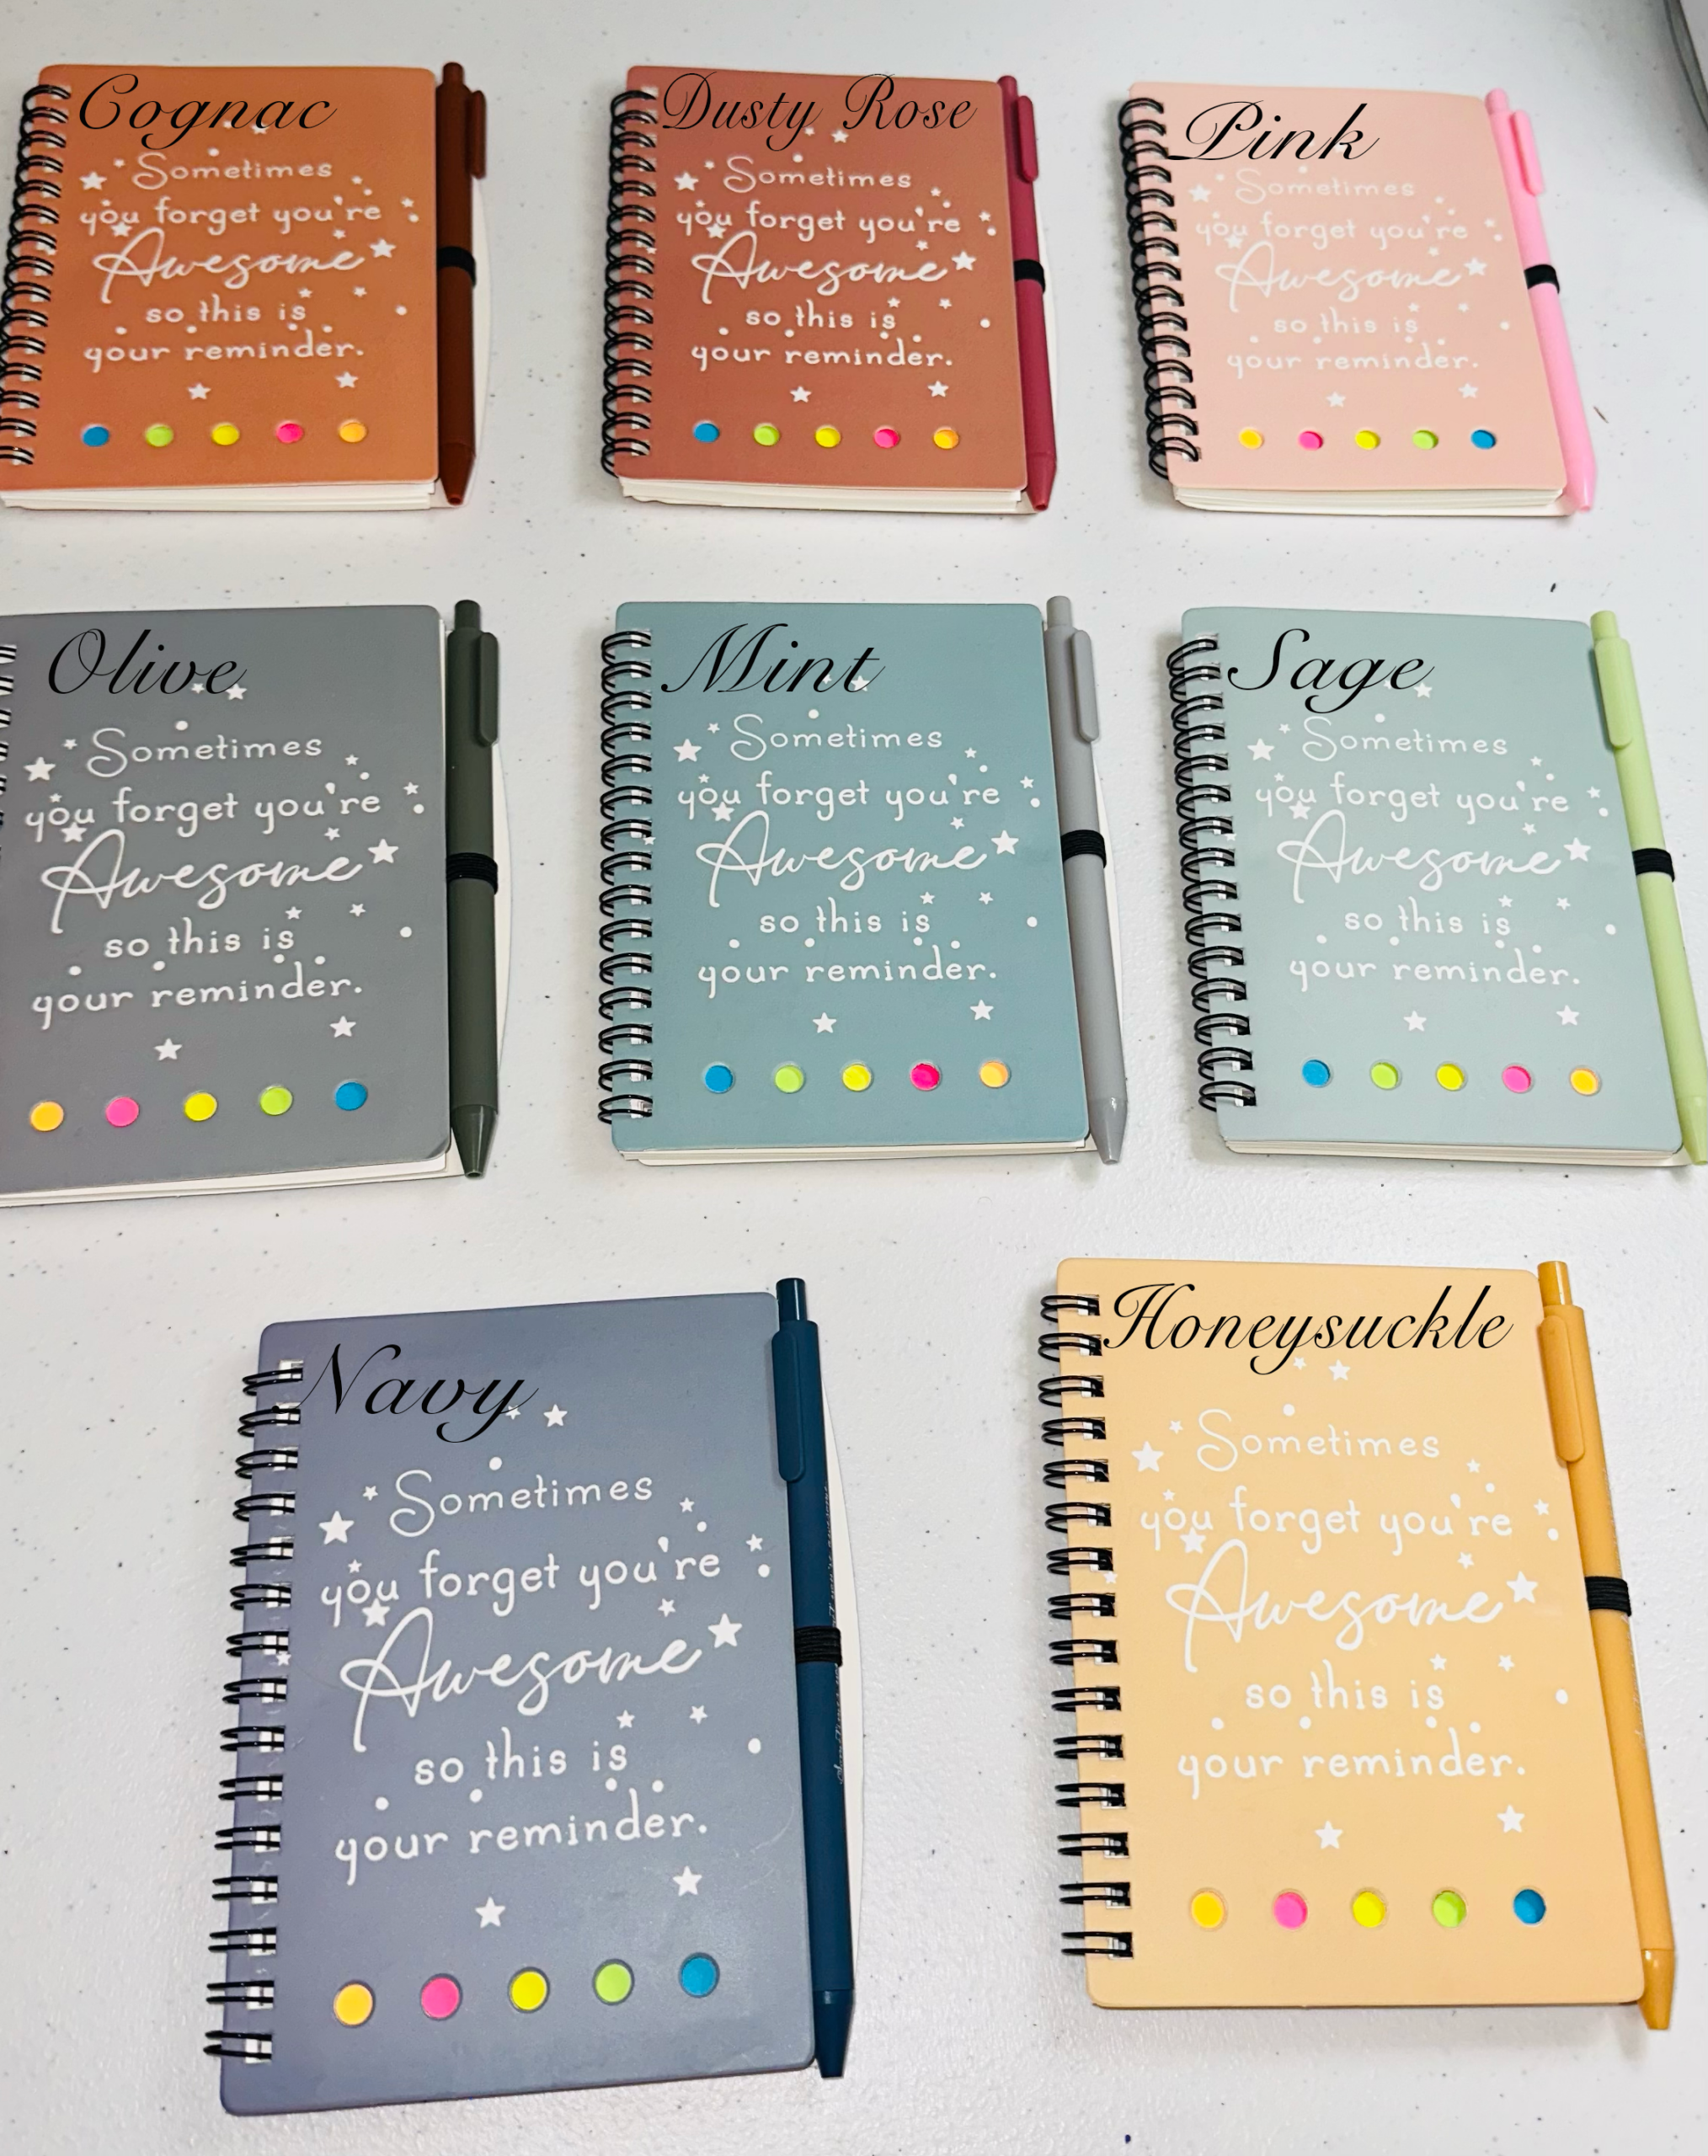 Cognac
Sometimes
you forget you're
Awesome
so this is
your reminder.
Dusty Rose
Sometimes
you forget you're
Awesome
so this is
your reminder.
Pink
Sometimes
you forget you're
Awesome
so this is
your reminder.
Olive
Sometimes
you forget you're
Awesome
so this is
your reminder.
Mint
Sometimes
you forget you're
Awesome
so this is
your reminder.
Sage
Sometimes
you forget you're
Awesome
so this is
your reminder.
Navy
Sometimes
you forget you're
Awesome
so this is
your reminder.
Honeysuckle
Sometimes
you forget you're
Awesome
so this is
your reminder.